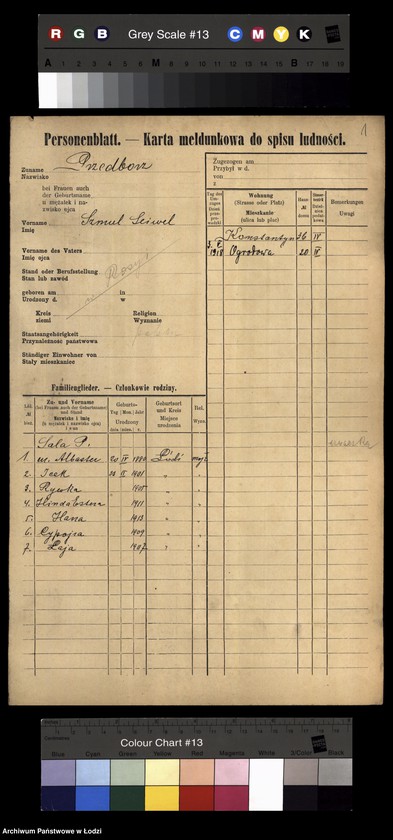 R G B Grey Scale #13 C M Y K
A 1 2 3 4 5 6 M 8 9 10 11 12 13 14 15 B 17 18 19
1
Personenblatt. — Karta meldunkowa do spisu ludności.
Zuname
Nazwisko Przedborz
bei Frauen auch
der Geburtsname
u mężatek i na-
zwisko ojca
Vorname Szmul Lejwel
Imię
Vorname des Vaters
Imię ojca
Stand oder Berufsstellung
Stan lub zawód
w Rosji
geboren am in
Urodzony d. w
Kreis Religion
ziemi Wyznanie
Staatsangehörigkeit
Przynależność państwowa
Ständiger Einwohner von
Stały mieszkaniec
Zugezogen am
Przybył w d.
von
z
Tag des Einzuges
Wohnung
(Strasse oder Platz)
Mieszkanie
(ulica lub plac)
Haus №
domu
Bemerkungen
Uwagi
Konstantyn 36 IV
1918 Ogrodowa 20 IV
Familienglieder. — Członkowie rodziny.
Zu- und Vorname
bei Frauen auch der Geburtsname
und Stand
Nazwisko i imię
Geburts-
Tag Mon. Jahr
Urodzony
Geburtsort
und Kreis
Miejsce
urodzenia
Rel.
Wyzn.
Sala P.
1. m. Albaster 20 IV 1880 Łódź mojż.
2. Icek 20 II 1901 " "
3. Rywka 1905 " "
4. Hinda Estera 1911 " "
5. Hana 1913 " "
6. Cypojra 1909 " "
7. Łaja 1907 " "
Colour Chart #13
Blue Cyan Green Yellow Red Magenta White 3/Color Black
Archiwum Państwowe w Łodzi